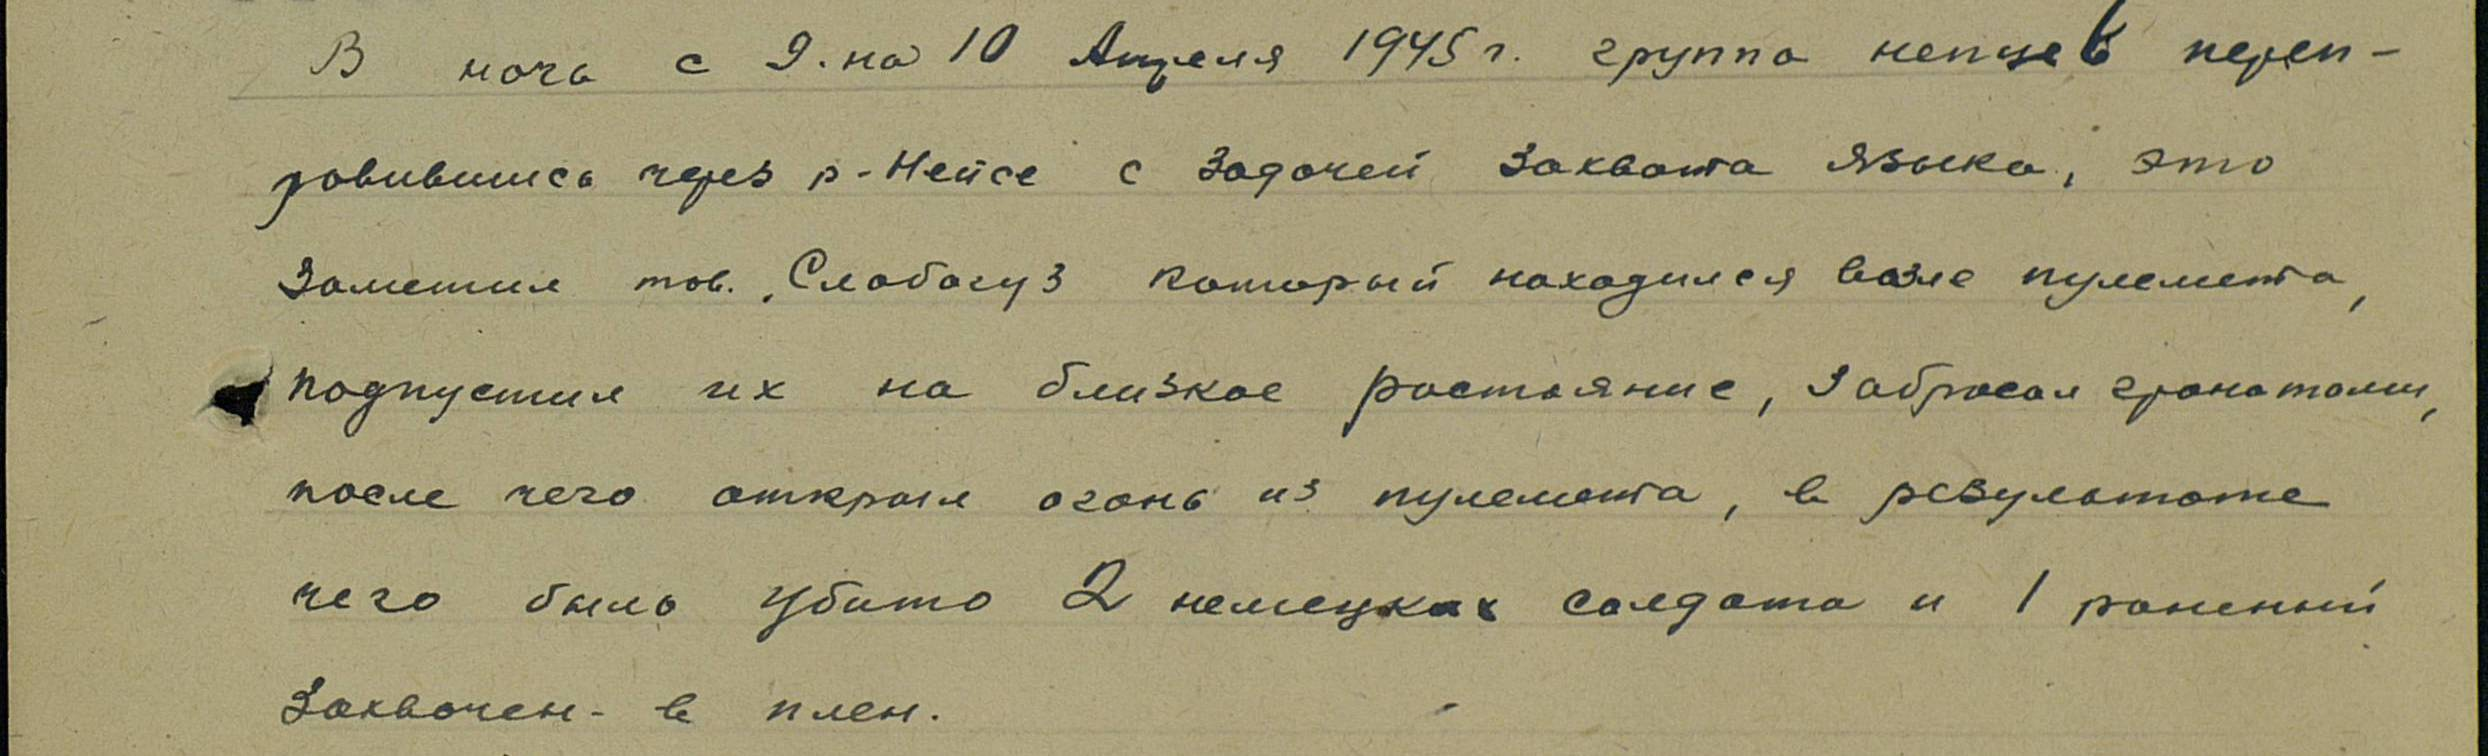 В ночь с 9. на 10 Апреля 1945 г. группа немцев переп-
равившись через р-Нейсе с задачей захвата языка, это
заметил тов. Слабогуз который находился возле пулемета,
подпустил их на близкое растояние, забросал гранатами,
после чего открыл огонь из пулемета, в результате
чего было убито 2 немецких солдата и 1 раненный
захвачен- в плен.